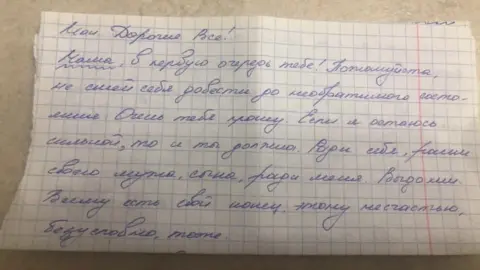 Мои Дорогие Все!
Мама, в первую очередь тебе! Пожалуйста,
не смей себя довести до необратимого исто-
щения. Очень тебя прошу. Если я остаюсь
сильной, то и ты должна. Ради себя, ради
своего мужа, сына, ради меня. Выдохни.
Всему есть свой конец, этому несчастью,
безусловно, тоже.